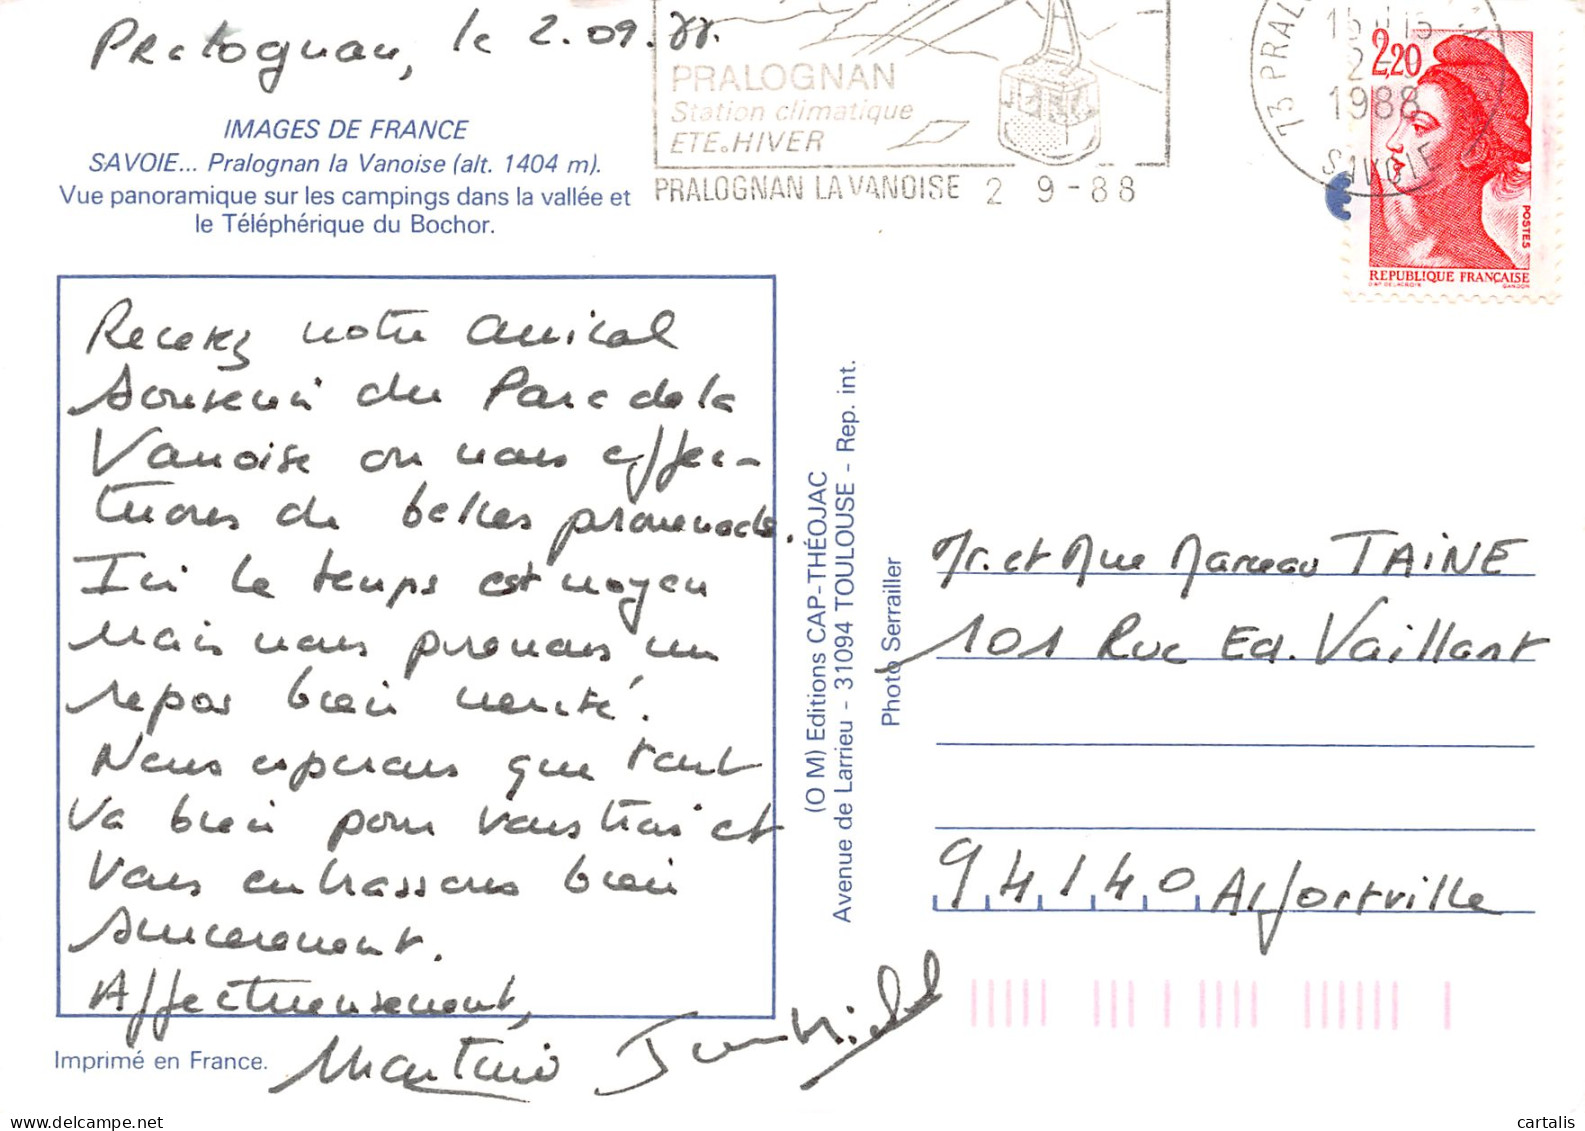 Pralognan, le 2.09.88.
IMAGES DE FRANCE
SAVOIE... Pralognan la Vanoise (alt. 1404 m).
Vue panoramique sur les campings dans la vallée et
le Téléphérique du Bochor.
PRALOGNAN
Station climatique
ETE.HIVER
PRALOGNAN LA VANOISE 2 9-88
73 PRAL
2
1988
SAVOIE
2,20
POSTES
REPUBLIQUE FRANÇAISE
D'AP. DELACROIX GANDON
Recevez notre amical
souvenir du Parc de la
Vanoise où nous effec-
tuons de belles promenades.
Ici le temps est moyen
mais nous prenons un
repos bien mérité.
Nous espérons que tout
va bien pour vous trois et
vous embrassons bien
sincèrement.
Affectueusement,
Martine Jean Michel
Imprimé en France.
(O M) Editions CAP-THÉOJAC
Avenue de Larrieu - 31094 TOULOUSE - Rep. int.
Photo Serrailler
Mr. et Mme Marceau TAINE
101 Rue Ed. Vaillant
94140 Alfortville
cartalis